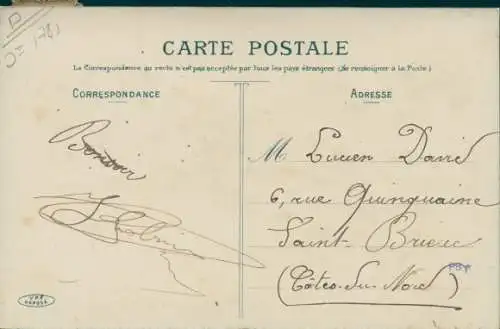 CARTE POSTALE
La Correspondance au recto n'est pas acceptée par tous les pays étrangers (Se renseigner à la Poste)
CORRESPONDANCE
Bonjour
ADRESSE
M Lucien David
6, rue Quinquaine
Saint-Brieuc
(Côtes-du-Nord)